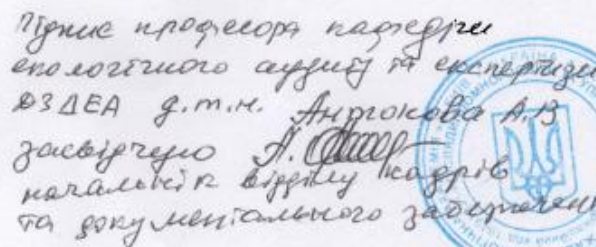 Підпис професора кафедри
екологічного аудиту та експертизи
ДЗДЕА д.т.н. А.В
засвідчую
начальник відділу кадрів
та документального забезпечення
УКРАЇНА